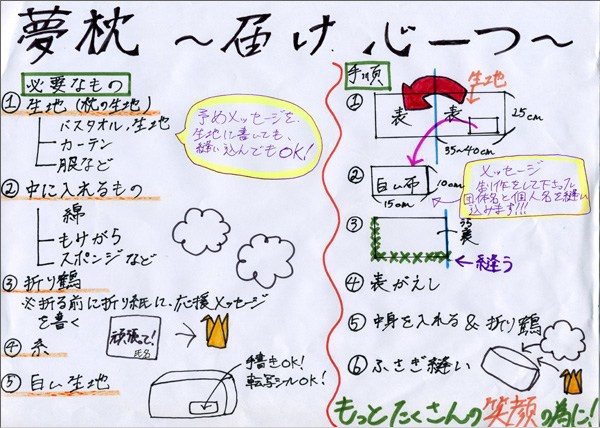 夢枕 ~届け 心一つ~
必要なもの
① 生地 (枕の生地)
バスタオル、生地
カーテン
服など
予めメッセージを、
生地に書いても、
縫い込んでもOK!
② 中に入れるもの
綿
もけがら
スポンジなど
③ 折り鶴
※折る前に折り紙に、応援メッセージ
を書く
頑張って!
氏名
④ 糸
⑤ 白い生地
手書きOK!
転写シールOK!
手順
生地
①
表
表
25cm
35~40cm
②
白い布
10cm
15cm
メッセージ
製作をして下さった
団体名と個人名を縫い
込みます!!!
③
裏
←縫う
④ 表がえし
⑤ 中身を入れる & 折り鶴
⑥ ふさぎ縫い
もっとたくさんの笑顔の為に!